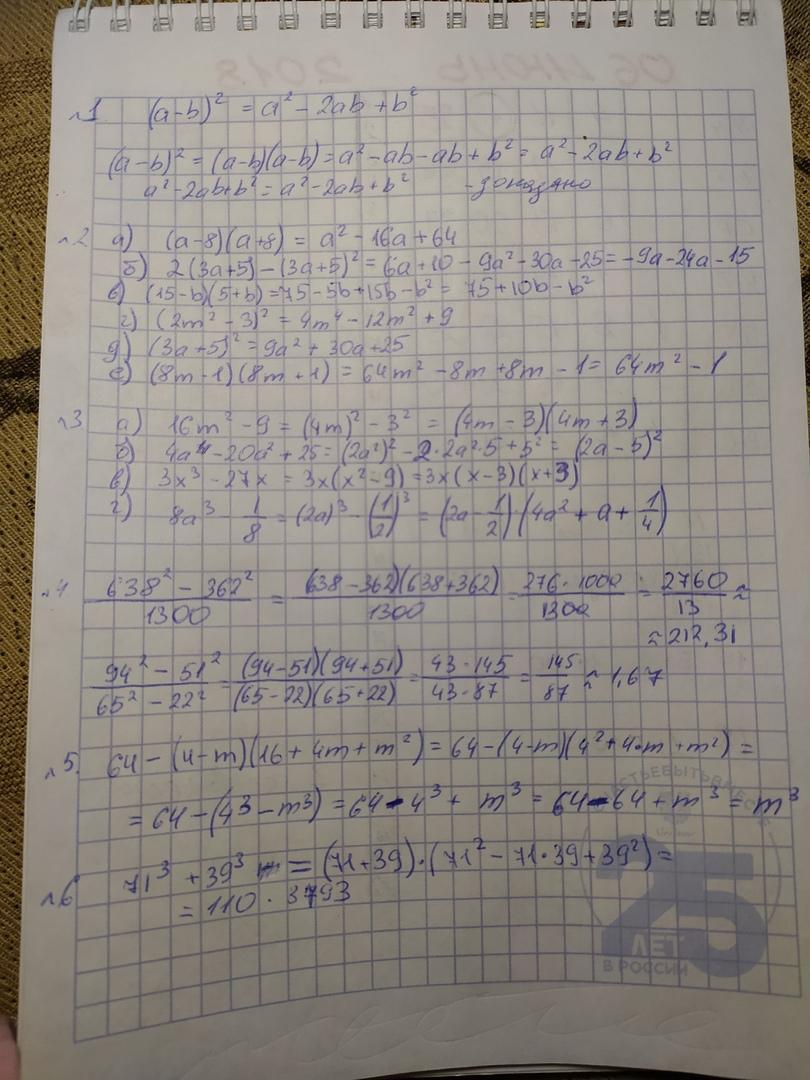 06 ИЮНЬ 2018
№1 (a-b)² = a² - 2ab + b²
(a-b)² = (a-b)(a-b) = a² - ab - ab + b² = a² - 2ab + b²
a² - 2ab + b² = a² - 2ab + b² - доказано
№2 а) (a-8)(a+8) = a² - 16a + 64
б) 2(3a+5) - (3a+5)² = 6a + 10 - 9a² - 30a - 25 = -9a - 24a - 15
в) (15-b)(5+b) = 75 - 5b + 15b - b² = 75 + 10b - b²
г) (2m² - 3)² = 4m⁴ - 12m² + 9
д) (3a+5)² = 9a² + 30a + 25
е) (8m-1)(8m+1) = 64m² - 8m + 8m - 1 = 64m² - 1
№3 а) 16m² - 9 = (4m)² - 3² = (4m-3)(4m+3)
б) 4a⁴ - 20a² + 25 = (2a²)² - 2·2a²·5 + 5² = (2a-5)²
в) 3x³ - 27x = 3x(x²-9) = 3x(x-3)(x+3)
г) 8a³ - 1/8 = (2a)³ - (1/2)³ = (2a - 1/2)·(4a² + a + 1/4)
№4 (638² - 362²)/1300 = (638-362)(638+362)/1300 = 276·1000/1300 = 2760/13 ≈
≈ 212,31
(94² - 51²)/(65² - 22²) = (94-51)(94+51)/(65-22)(65+22) = 43·145/43·87 = 145/87 ≈ 1,67
№5. 64 - (4-m)(16+4m+m²) = 64 - (4-m)(4²+4·m+m²) =
= 64 - (4³ - m³) = 64 - 4³ + m³ = 64 - 64 + m³ = m³
№6 71³ + 39³ = (71+39)·(71² - 71·39 + 39²) =
= 110 · 3793
25
ЛЕТ
В РОССИИ